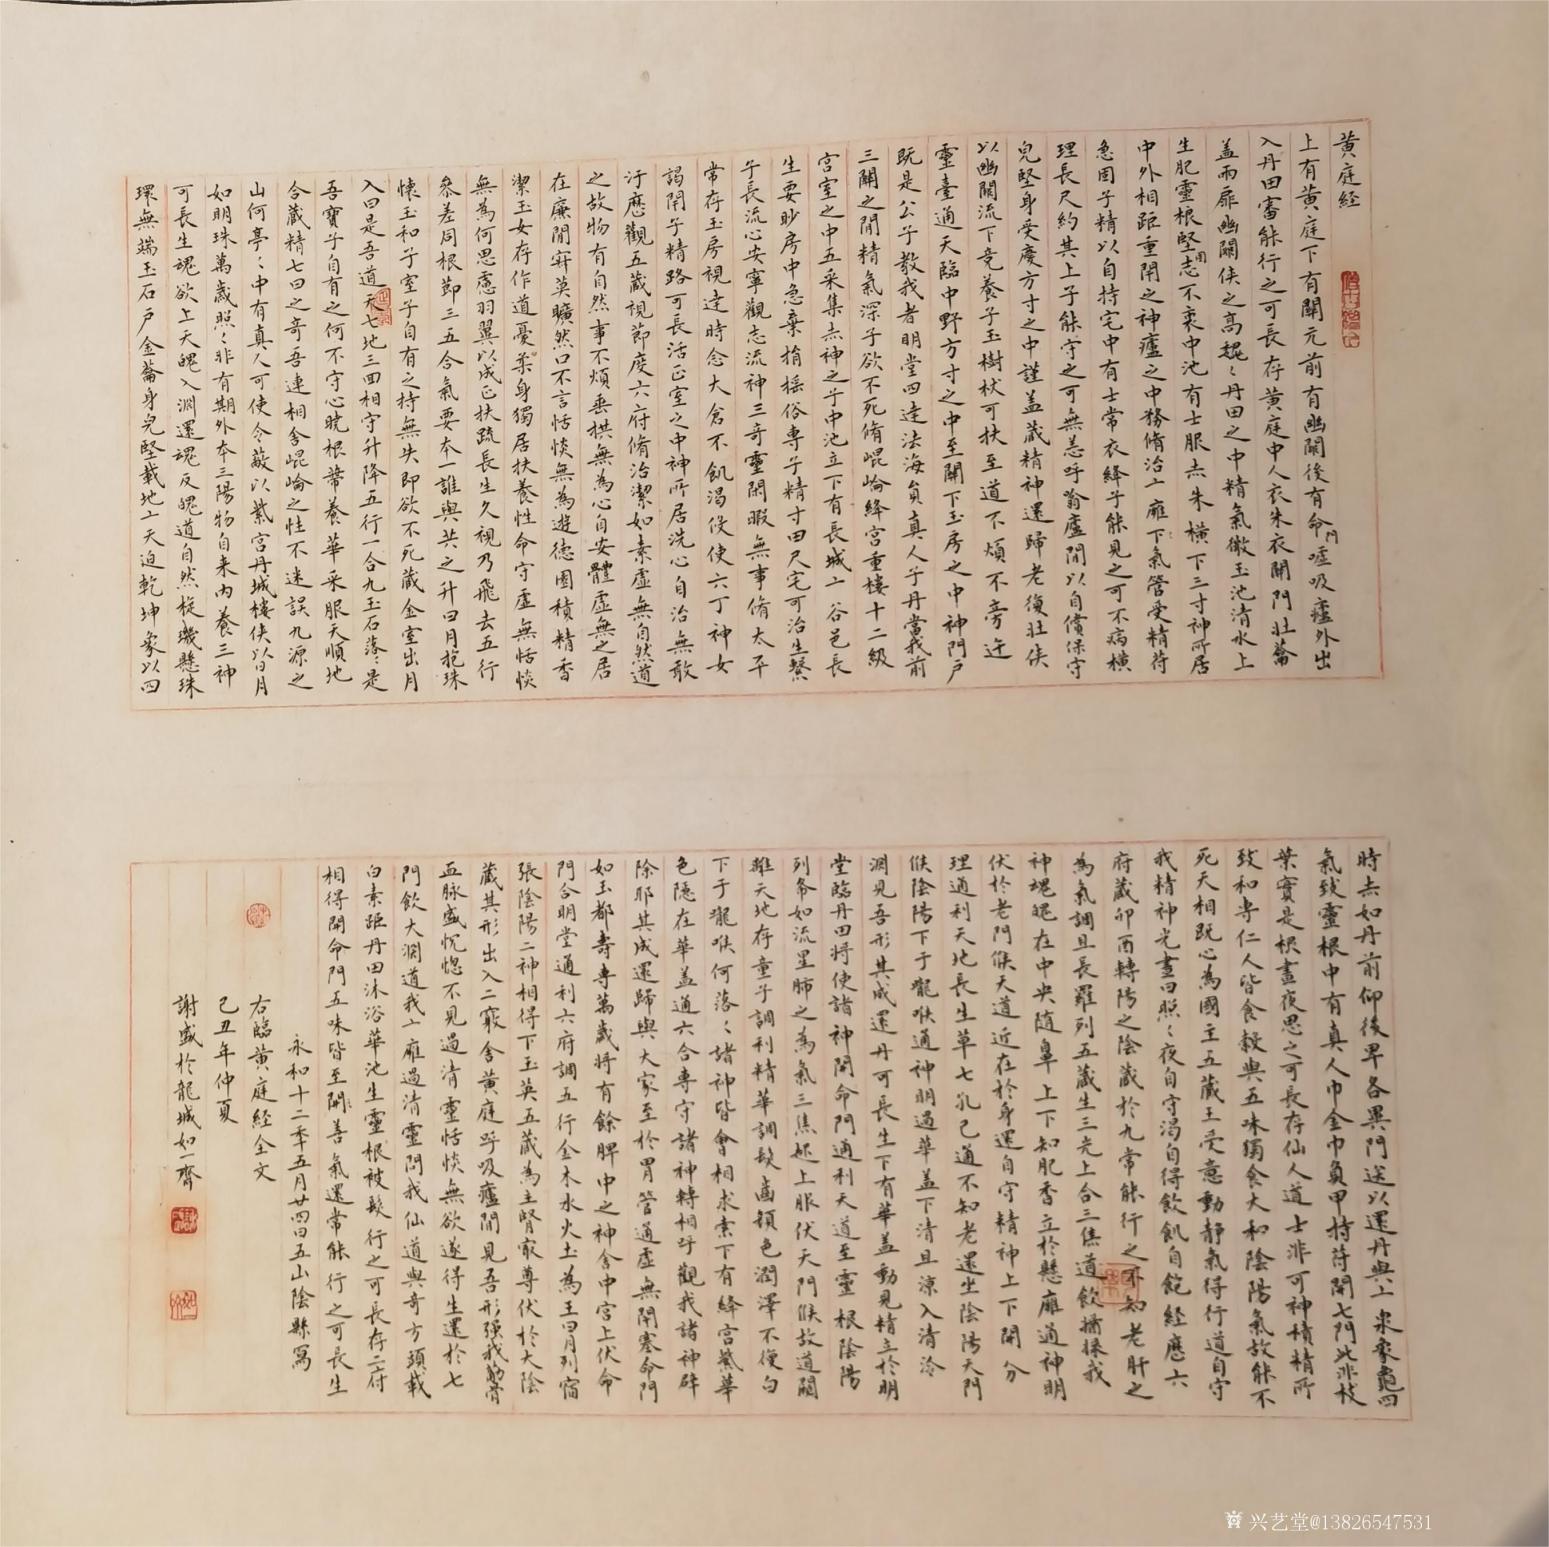 黃庭経
上有黃庭下有關元前有幽闕後有命門噓吸廬外出
入丹田審能行之可長存黃庭中人衣朱衣關門壯蘥
盖兩扉幽闕俠之高魏〻丹田之中精氣微玉池清水上
生肥靈根堅固志不衰中池有士服赤朱橫下三寸神所居
中外相距重閉之神廬之中務脩治玄廱下氣管受精苻
急固子精以自持宅中有士常衣絳子能見之可不病橫
理長尺約其上子能守之可無恙呼翕廬閒以自償保守
皃堅身受慶方寸之中謹盖藏精神還歸老復壯俠
以幽闕流下竟養子玉樹杖可扶至道不煩不旁迕
靈臺通天臨中野方寸之中至關下玉房之中神門戶
既是公子教我者明堂四達法海負真人子丹當我前
三關之閒精氣深子欲不死脩崐崘絳宮重樓十二級
宮室之中五采集赤神之子中池立下有長城玄谷邑長
生要眇房中急棄捐揺俗專子精寸田尺宅可治生繫
子長流心安寧觀志流神三奇靈閑暇無事脩太平
常存玉房視達時念大倉不飢渴伇使六丁神女
謁閉子精路可長活正室之中神所居洗心自治無敢
汙歷觀五藏視節度六府脩治潔如素虛無自然道
之故物有自然事不煩垂拱無為心自安體虛無之居
在廉閒寂莫曠然口不言恬惔無為遊德園積精香
潔玉女存作道憂柔身獨居扶養性命守虛無恬惔
無為何思慮羽翼以成正扶疏長生久視乃飛去五行
叅差同根節三五合氣要本一誰與共之升日月抱珠
懐玉和子室子自有之持無失即欲不死藏金室出月
入日是吾道天七地三回相守升降五行一合九玉石落〻是
吾寶子自有之何不守心曉根蔕養華采服天順地
合藏精七日之奇吾連相舍崐崘之性不迷誤九源之
山何亭〻中有真人可使令蔽以紫宮丹城樓俠以日月
如明珠萬歲照〻非有期外本三陽物自来內養三神
可長生魂欲上天魄入淵還魂反魄道自然旋璣懸珠
環無端玉石戶金蘥身完堅載地玄天迫乾坤象以四
時赤如丹前仰後卑各異門送以還丹與玄泉象龜四
氣致靈根中有真人巾金巾負甲持苻開七門此非枝
葉實是根晝夜思之可長存仙人道士非可神積精所
致和専仁人皆食穀與五味獨食大和陰陽氣故能不
死天相既心為國主五藏王受意動靜氣得行道自守
我精神光晝日照〻夜自守渴自得飲飢自飽経歷六
府藏卯酉轉陽之陰藏於九常能行之不知老肝之
為氣調且長羅列五藏生三光上合三焦道飲醬漿我
神魂魄在中央随鼻上下知肥香立於懸廱通神明
伏於老門候天道近在於身還自守精神上下開分
理通利天地長生草七孔已通不知老還坐陰陽天門
候陰陽下于嚨喉通神明過華盖下清且涼入清泠
淵見吾形其成還丹可長生下有華盖動見精立於明
堂臨丹田將使諸神開命門通利天道至靈根陰陽
列布如流星肺之為氣三焦起上服伏天門候故道闚
離天地存童子調利精華調髮齒顔色潤澤不復白
下于嚨喉何落〻諸神皆會相求索下有絳宮紫華
色隱在華盖通六合専守諸神轉相呼觀我諸神辟
除耶其成還歸與大家至於胃管通虛無閉塞命門
如玉都壽専萬歲將有餘脾中之神舍中宮上伏命
門合明堂通利六府調五行金木水火土為王日月列宿
張陰陽二神相得下玉英五藏為主腎㝡尊伏於大陰
藏其形出入二竅舍黃庭呼吸廬閒見吾形強我筋骨
血脉盛怳惚不見過清靈恬惔無欲遂得生還於七
門飲大淵道我玄廱過清靈問我仙道與奇方頭載
白素距丹田沐浴華池生靈根被髮行之可長存二府
相得開命門五味皆至開善氣還常能行之可長生
永和十二年五月廿四日五山陰縣寫
右臨黃庭經全文
己丑年仲夏
謝盛於龍城如一齋
兴艺堂@13826547531